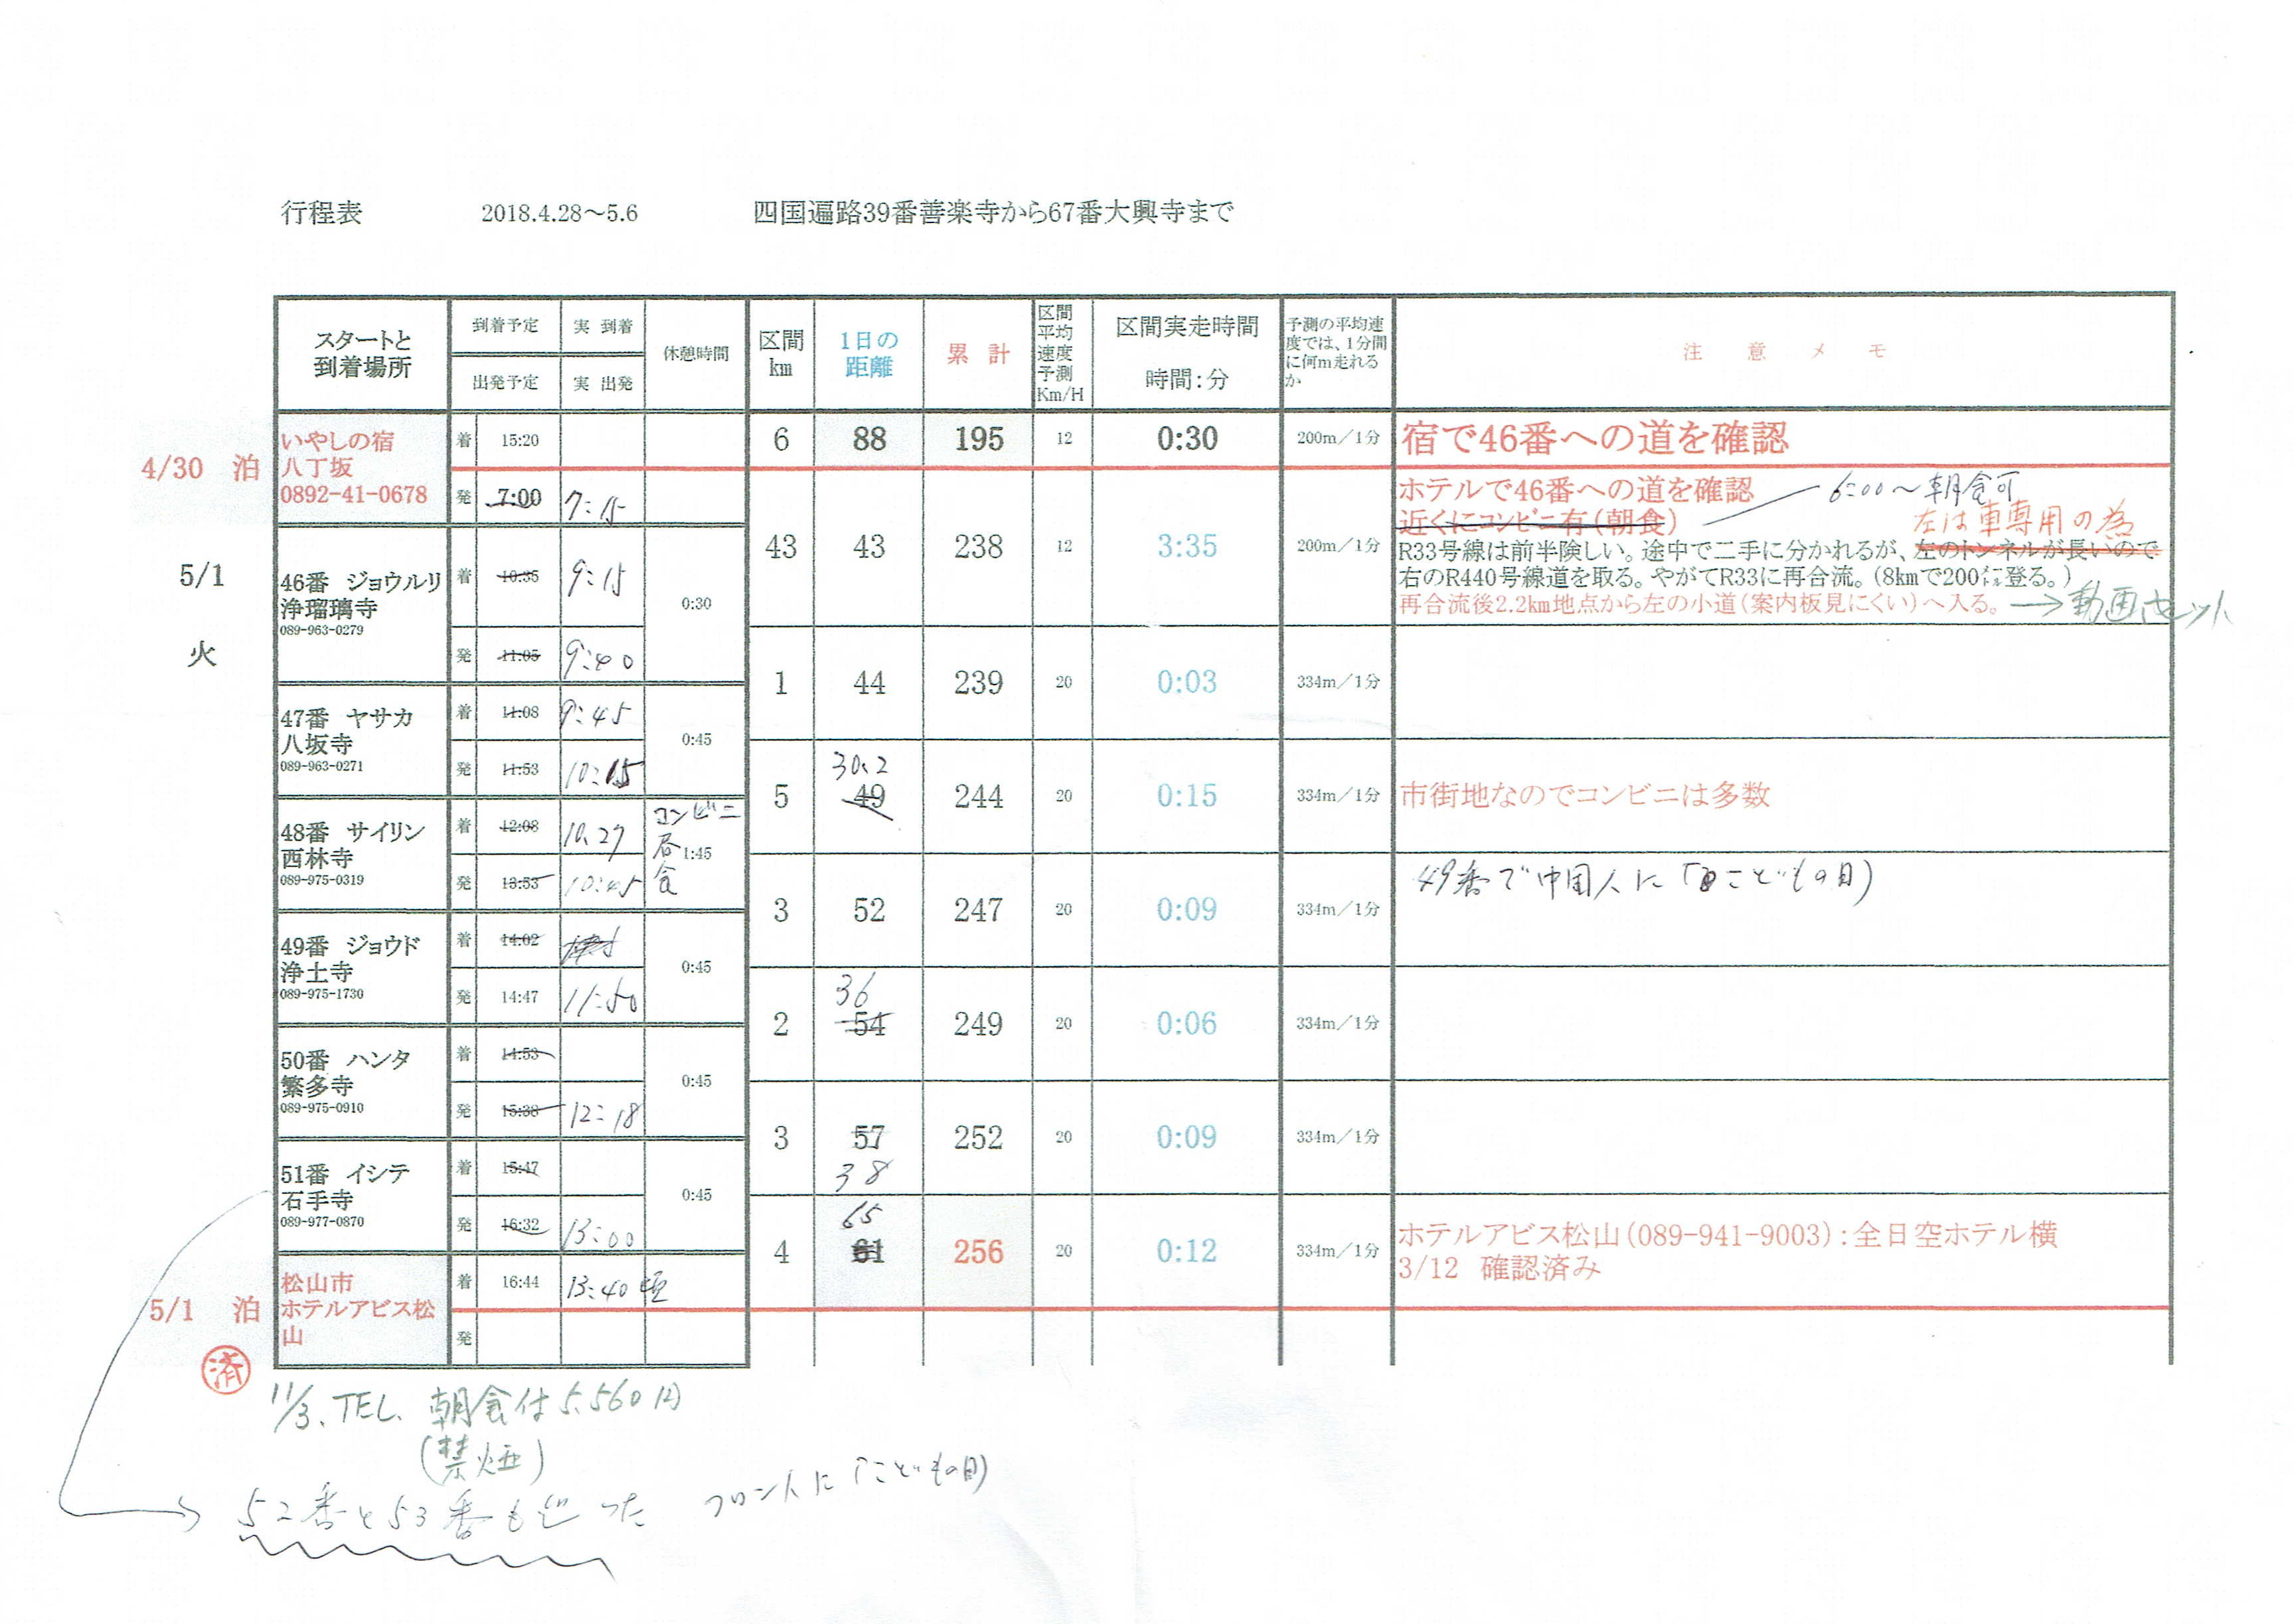 行程表 2018.4.28～5.6 四国遍路39番善楽寺から67番大興寺まで
スタートと
到着場所
到着予定 実 到着
出発予定 実 出発
休憩時間
区間
km
1日の
距離
累 計
区間
平均
速度
予測
Km/H
区間実走時間
時間:分
予測の平均速
度では、1分間
に何m走れる
か
注 意 メ モ
4/30 泊
いやしの宿
八丁坂
0892-41-0678
着 15:20
発 7:00 7:15
6 88 195 12 0:30 200m/1分
宿で46番への道を確認
5/1
火
46番 ジョウルリ
浄瑠璃寺
089-963-0279
着 10:35 9:15
発 11:05 9:40
0:30
43 43 238 12 3:35 200m/1分
ホテルで46番への道を確認
6:00～朝食可
近くにコンビニ有(朝食)
左は車専用の為
R33号線は前半険しい。途中で二手に分かれるが、左のトンネルが長いので
右のR440号線道を取る。やがてR33に再合流。(8kmで200㍍登る。)
再合流後2.2km地点から左の小道(案内板見にくい)へ入る。→動画セット
47番 ヤサカ
八坂寺
089-963-0271
着 11:08 9:45
発 11:53 10:15
0:45
1 44 239 20 0:03 334m/1分
48番 サイリン
西林寺
089-975-0319
着 12:08 10.27
発 13:53 10:45
コンビニ
昼
食
1:45
30.2
5 49 244 20 0:15 334m/1分
市街地なのでコンビニは多数
49番 ジョウド
浄土寺
089-975-1730
着 14:02
発 14:47 11:50
0:45
3 52 247 20 0:09 334m/1分
49番で中国人に「こどもの目」
50番 ハンタ
繁多寺
089-975-0910
着 14:53
発 15:38 12:18
0:45
36
2 54 249 20 0:06 334m/1分
51番 イシテ
石手寺
089-977-0870
着 15:47
発 16:32 13:00
0:45
3 57 252 20 0:09 334m/1分
38
5/1 泊
松山市
ホテルアビス松
山
着 16:44 13:40頃
発
65
4 61 256 20 0:12 334m/1分
ホテルアビス松山(089-941-9003):全日空ホテル横
3/12 確認済み
済
11/3. TEL. 朝食付5,560円
(禁煙)
52番と53番も近った フロントに「こどもの目」